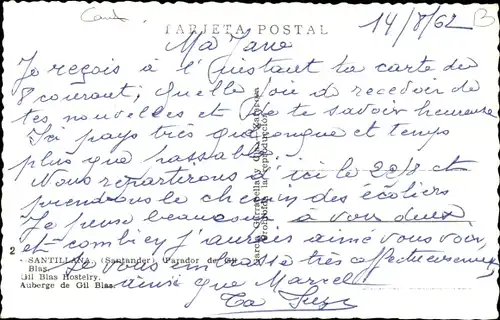 TARJETA POSTAL
14/8/62
B
Ma Jane
Je reçois à l'instant ta carte du
8 courant; quelle joie de recevoir de
tes nouvelles et de te savoir heureuse
Ici pays très et temps
plus que passable.
Nous repartirons d'ici le 20/8 et
prendrons le chemin des écoliers
Je pense beaucoup à vous deux
et combien j'aurais aimé vous voir,
Je vous embrasse très affectueusement
ainsi que Marcel
Ta
2
- SANTILLANA (Santander) Parador de Gil
Blas
Gil Blas Hostelry.
Auberge de Gil Blas
Prohibida la reproducción